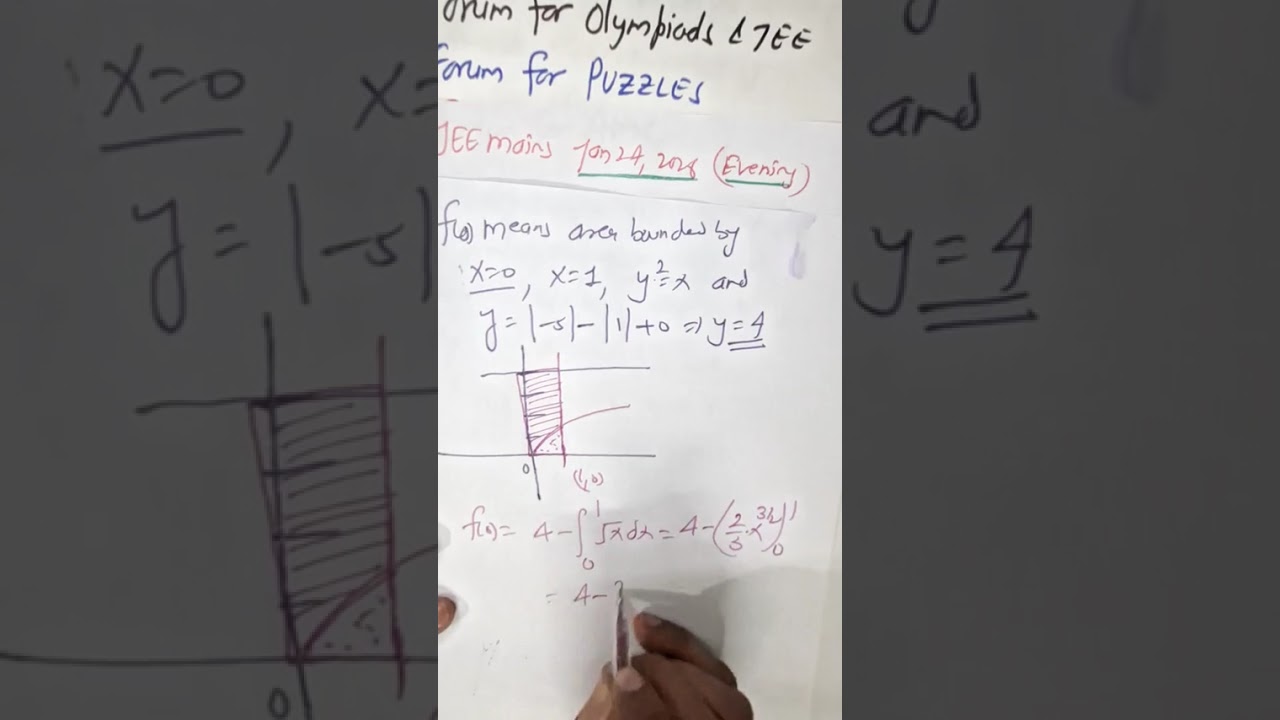 orum for Olympiads & JEE
Forum for PUZZLES
JEE mains Jan 24, 2026 (Evening)
f(0) means area bounded by
x=0, x=1, y²=x and
y = |-5| - |1| + 0 ⇒ y = 4
0
(1,0)
f(0) = 4 - ∫₀¹ √x dx = 4 - (2/3 · x^3/2)₀¹
= 4 - 2
x=0, x=
and
y = |-5|
y = 4
0